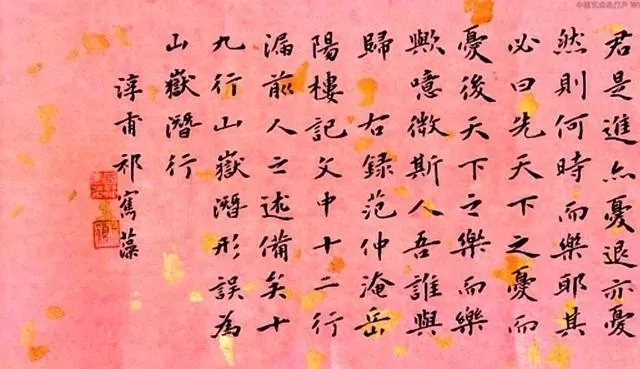 君是進亦憂退亦憂
然則何時而樂耶其
必曰先天下之憂而
憂後天下之樂而樂
歟噫微斯人吾誰與
歸右録范仲淹岳
陽樓記文中十二行
漏前人之述備矣十
九行山嶽潛形誤為
山嶽潛行
淳甫祁寯藻